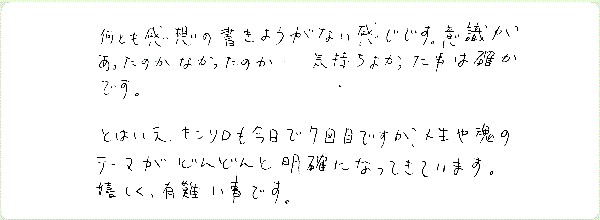 何とも感想の書きようがない感じです。意識が
あったのかなかったのか… 気持ちよかった事は確か
です。
とはいえ、キンソロも今日で7回目ですが、人生や魂の
テーマがどんどんと明確になってきています。
嬉しく、有難い事です。